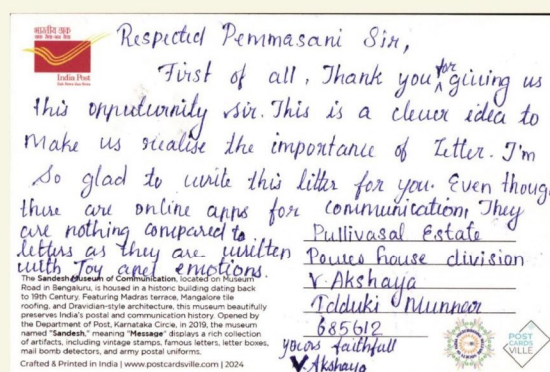 भारतीय डाक
India Post
Respected Pemmasani Sir,
First of all, Thank you for giving us
this opputurnity sir. This is a clever idea to
Make us realise the importance of Letter. I'm
So glad to write this litter for you. Even though
there are online apps for communication, They
are nothing compared to
letters as they are written
with Joy and emotions.
Pullivasal Estate
Power house division
V. Akshaya
Idduki Munnar
685612
yours faithfull
V. Akshaya
The Sandesh Museum of Communication, located on Museum
Road in Bengaluru, is housed in a historic building dating back
to 19th Century. Featuring Madras terrace, Mangalore tile
roofing, and Dravidian-style architecture, this museum beautifully
preserves India's postal and communication history. Opened by
the Department of Post, Karnataka Circle, in 2019, the museum
named "Sandesh," meaning "Message" displays a rich collection
of artifacts, including vintage stamps, famous letters, letter boxes,
mail bomb detectors, and army postal uniforms.
Crafted & Printed in India | www.postcardsville.com | 2024
POST
CARDS
VILLE